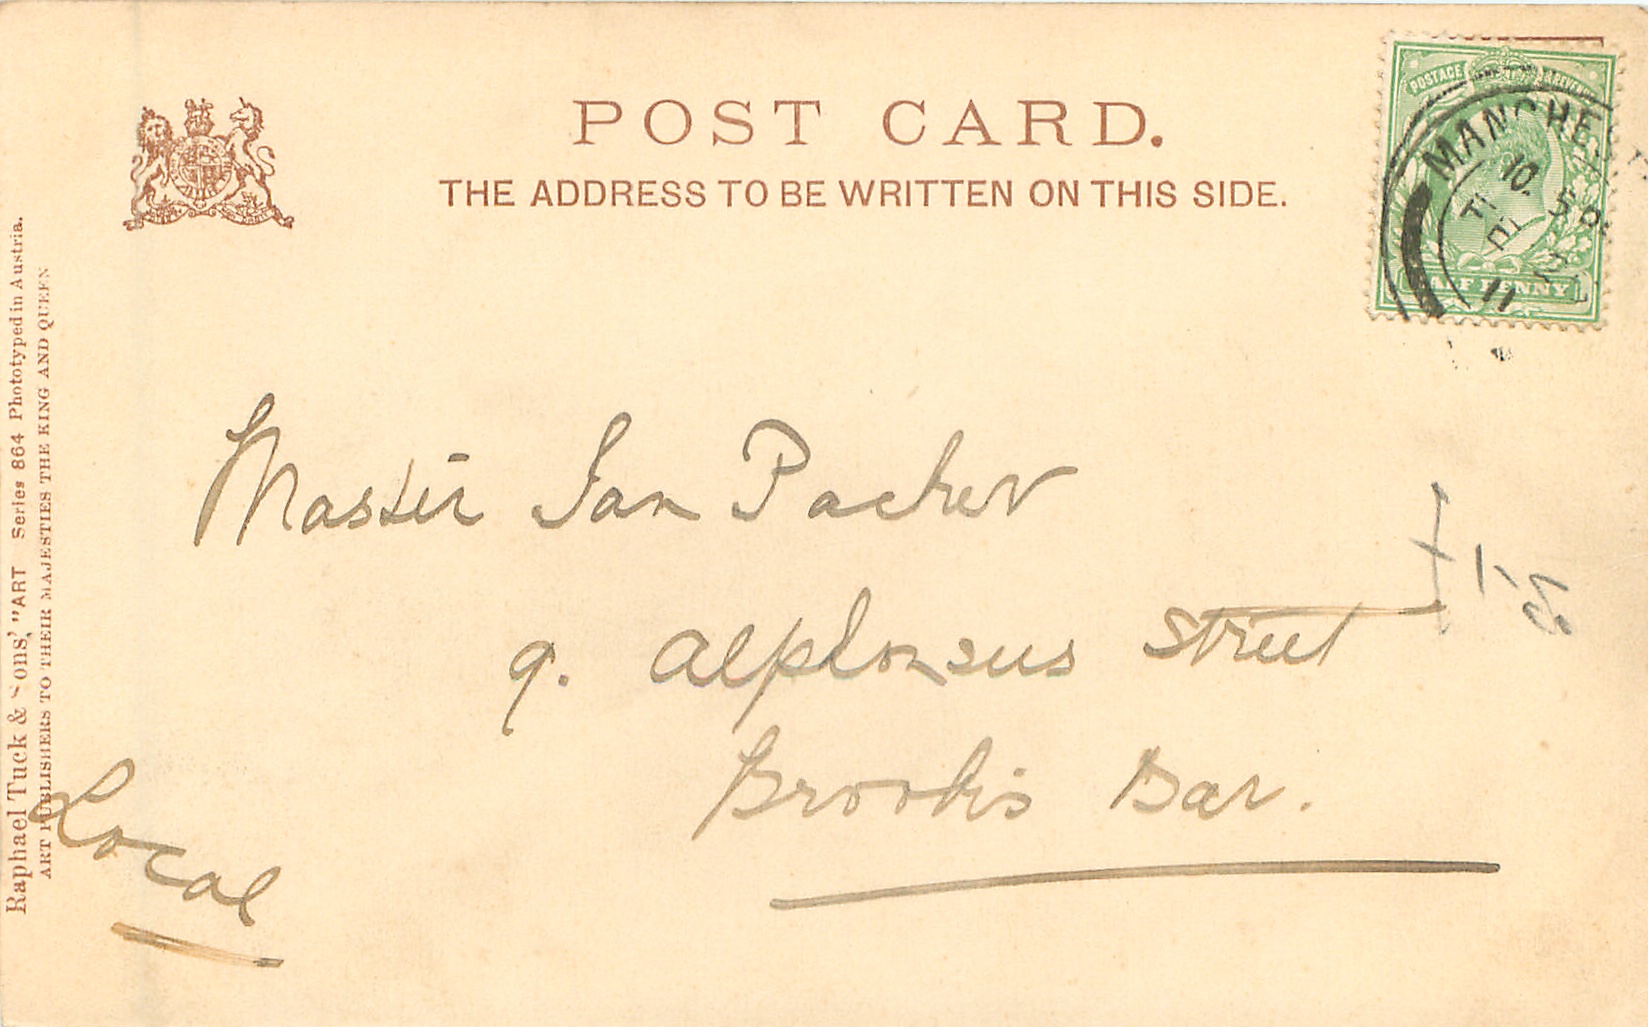 POST CARD.
THE ADDRESS TO BE WRITTEN ON THIS SIDE.
POSTAGE & REVENUE
MANCHES
10.
5 P
11
HALF PENNY
Master Ian Packer
9. Alphonsus Street
Brook's Bar.
Local
Raphael Tuck & Sons' "ART Series 864 Phototyped in Austria.
ART PUBLISHERS TO THEIR MAJESTIES THE KING AND QUEEN